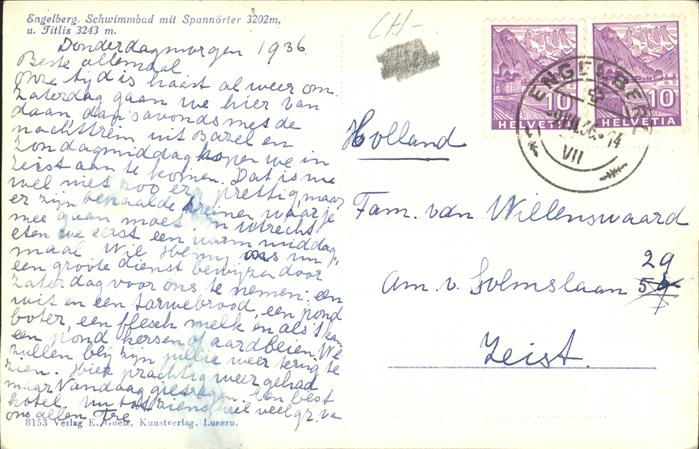 Engelberg. Schwimmbad mit Spannörter 3202m,
u. Titlis 3243 m.
Donderdagmorgen 1936.
Beste allemaal
Onze tijd is haast al weer om.
Zaterdag gaan we hier van
daan, dan 's avonds met de
nachttrein uit Bazel en
Zondagmiddag hopen we in
Zeist aan te komen. Dat is nu
wel niet zoo erg prettig maar
er zijn bepaalde treinen waar je
mee gaan moet. In Utrecht
eten we eerst een warm middag
maal. Wil ons nu
een groote dienst bewijzen door
Zaterdag voor ons te nemen: een
wit en een tarwebrood, een pond
boter, een flesch melk en als 't kan
een pond kersen of aardbeien. We
zullen blij zijn jullie weer terug te
zien. Hier prachtig weer gehad
maar Vandaag gieregen. Een best
hotel. Nu tot ziens heel veel gr. va
ons allen
8153 Verlag E. Goetz, Kunstverlag, Luzern.
CH-
10
HELVETIA
10
HELVETIA
ENGELBERG
VII
Holland
Fam. van Willenswaard
29
Am. v. Solmslaan
Zeist.